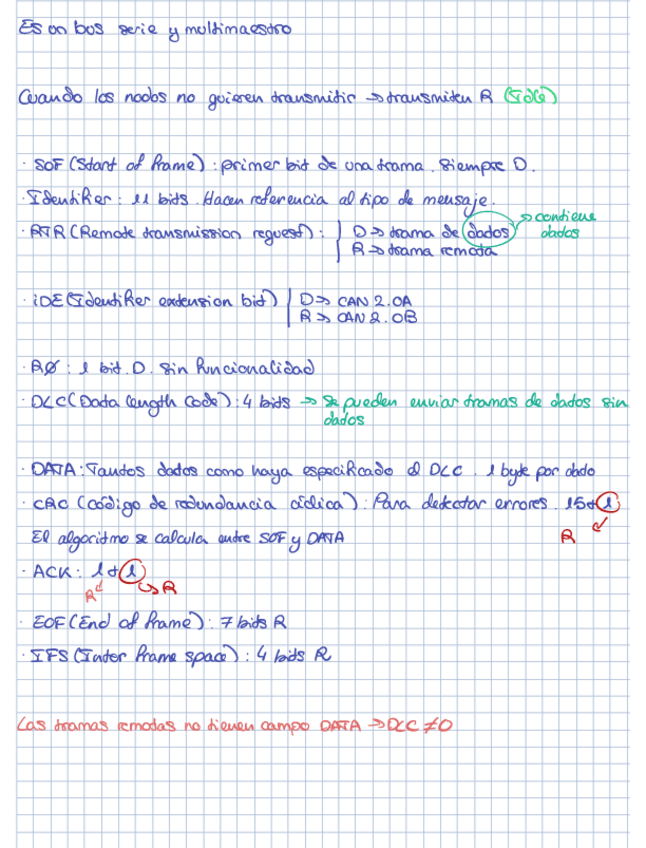 Es un bus serie y multimaestro
Cuando los nodos no quieren transmitir → transmiten R (Idle)
· SOF (Start of frame) : primer bit de una trama. Siempre D.
· Identifier : 11 bits. Hacen referencia al tipo de mensaje.
· RTR (Remote transmission request) : | D → trama de datos → contiene datos
R → trama remota
· iDE (Identifier extension bit) | D → CAN 2.0A
R → CAN 2.0B
· RØ : 1 bit. D. Sin funcionalidad
· DLC (Data length Code) : 4 bits → Se pueden enviar tramas de datos sin datos
· DATA : Tantos datos como haya especificado el DLC. 1 byte por dato
· CRC (código de redundancia cíclica) : Para detectar errores. 15+1
El algoritmo se calcula entre SOF y DATA R
· ACK : 1+1
R → R
· EOF (End of frame) : 7 bits R
· IFS (Inter frame space) : 4 bits R
Las tramas remotas no tienen campo DATA → DLC ≠ 0